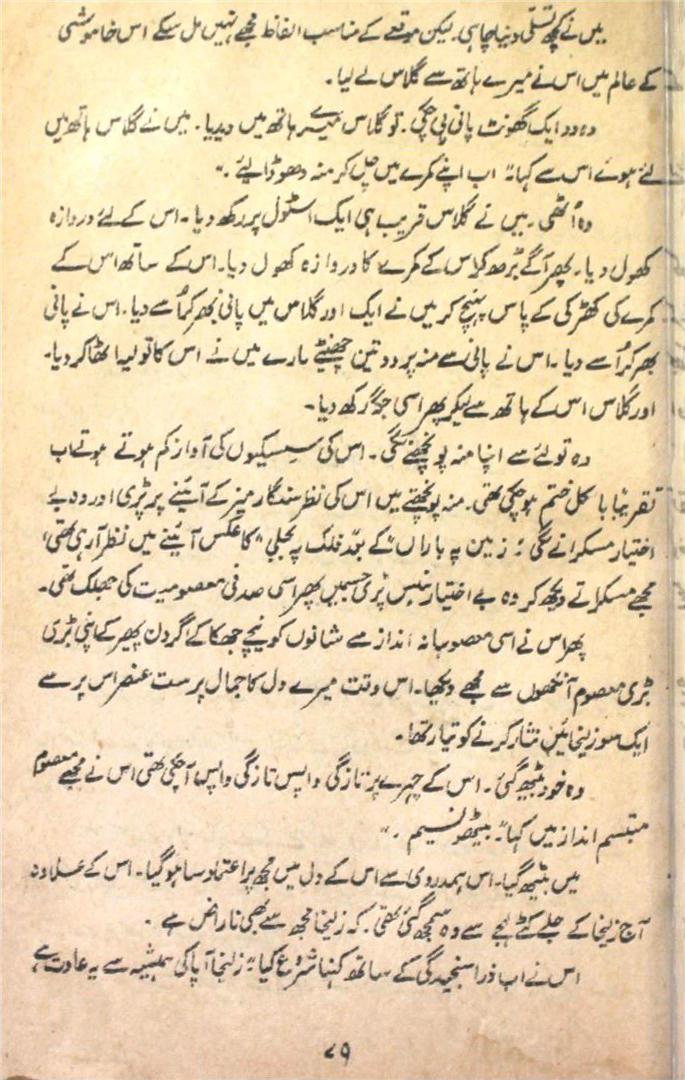 میں نے کچھ تسلی دینا چاہی۔ لیکن موقعے کے مناسب الفاظ مجھے نہیں مل سکے اس خاموشی
کے عالم میں اس نے میرے ہاتھ سے گلاس لے لیا۔
وہ دو ایک گھونٹ پانی پی چکی۔ تو گلاس میرے ہاتھ میں دیدیا۔ میں نے گلاس ہاتھ میں
لئے ہوئے اس سے کہا " اب اپنے کمرے میں چل کر منہ دھو ڈالیئے ۔"
وہ اُٹھی ۔ میں نے گلاس قریب ہی ایک اسٹول پر رکھ دیا ۔ اس کے لئے دروازہ
کھول دیا۔ پھر آگے بڑھ کر اس کے کمرے کا دروازہ کھول دیا۔ اس کے ساتھ اس کے
کمرے کی کھڑکی کے پاس پہنچ کر میں نے ایک اور گلاس میں پانی بھر کر اُسے دیا۔ اس نے پانی
بھر کر اُسے دیا ۔ اس نے پانی سے منہ پر دو تین چھینٹے مارے میں نے اس کا تولیہ اٹھا کر دیا۔
اور گلاس اس کے ہاتھ سے لیکر پھر اسی جگہ رکھ دیا۔
وہ تولئے سے اپنا منہ پونچھنے لگی ۔ اس کی سسکیوں کی آواز کم ہوتے ہوتے اب
تقریباً بالکل ختم ہو چکی تھی۔ منہ پونچھتے میں اس کی نظر سنگار میز کے آئینے پر پڑی اور وہ بے
اختیار مسکرانے لگی ؛ زمین پہ باراں" کے بعد فلک پہ بجلی" کا عکس آئینے میں نظر آرہی تھی،
مجھے مسکراتے دیکھ کر وہ بے اختیار ہنس پڑی جسمیں پھر اسی صدفی معصومیت کی جھلک تھی۔
پھر اس نے اسی معصومانہ انداز سے شانوں کو نیچے جھکا کے اگردن پھیر کے اپنی بڑی
بڑی معصوم آنکھوں سے مجھے دیکھا۔ اس وقت میرے دل کا جمال پرست عنصر اس پر سے
ایک سو زلیخائیں نثار کرنے کو تیار تھا۔
وہ خود بیٹھ گئی ۔ اس کے چہرے پر تازگی واپس تازگی واپس آچکی تھی اس نے مجھے معصوم
متبسم انداز میں کہا " بیٹھو نسیم ۔ "
میں بیٹھ گیا۔ اس ہمدردی سے اس کے دل میں مجھ پر اعتماد سا ہو گیا۔ اس کے علاوہ
آج زلیخا کے جلے کٹے لہجے سے وہ سمجھ گئی تھی۔ کہ زلیخا مجھ سے بھی ناراض ہے ۔
اس نے اب ذرا سنجیدگی کے ساتھ کہنا شروع کیا " زلیخا آپا کی ہمیشہ سے یہ عادت ہے
۷۹